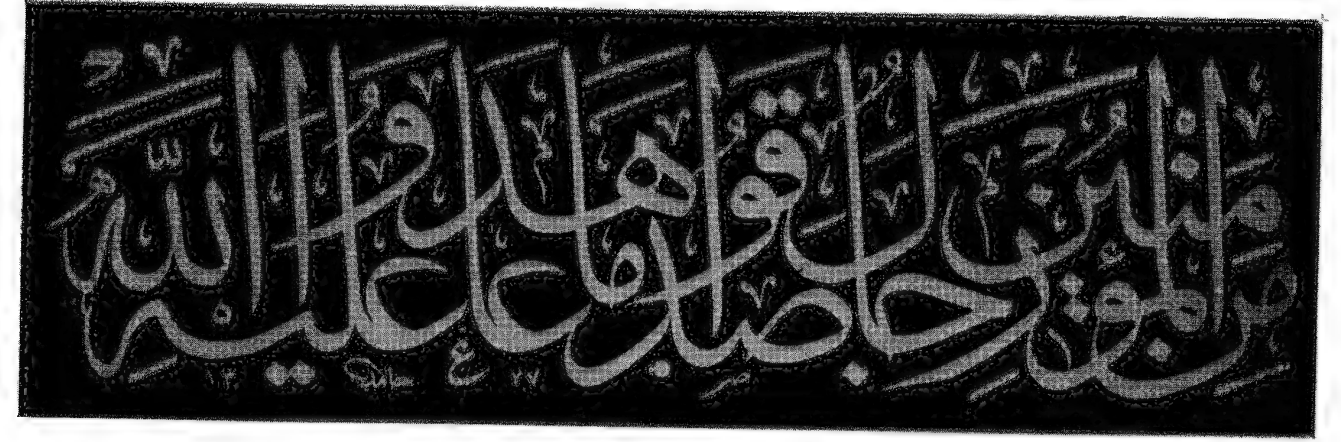 مِنَ الْمُؤْمِنِينَ رِجَالٌ صَدَقُوا مَا عَاهَدُوا اللَّهَ عَلَيْهِ